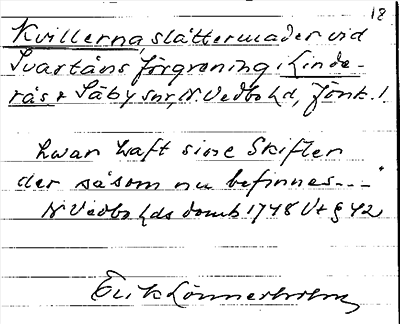 18
Kvillerna, slåttermader vid
Svartåns förgrening i Linde-
rås & Säby snr, N. Vedbo hd, Jönk. l.
hwar haft sine Skiften
der såsom nu befinnes---"
N Vedbo hds domb 1748 Vt § 42
Erik Lönnerholm